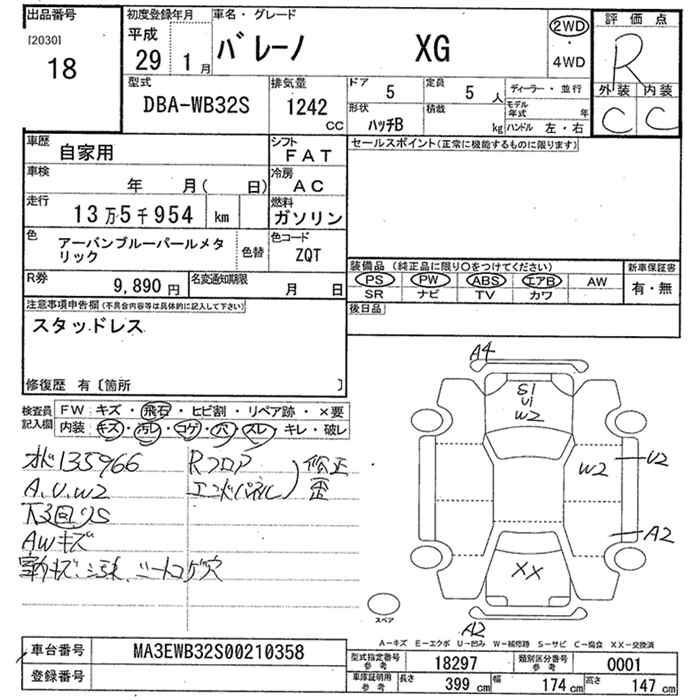 出品番号 初度登録年月 車名・グレード 評価点
[2030] 18
平成 29 1月 バレーノ XG 2WD・4WD R
外装 内装
C C
型式 排気量 ドア 5 定員 5人 ディーラー・並行
DBA-WB32S 1242 cc 形状 ハッチB 積載 kg モデル年式 年
ハンドル 左・右
車歴 自家用 シフト FAT セールスポイント(正常に機能するものに限ります)
車検 年 月( 日) 冷房 AC
走行 13万5千954 km 燃料 ガソリン
色 アーバンブルーパールメタリック 色替 色コード ZQT
装備品(純正品に限り○をつけてください) 新車保証書
PS PW ABS エアB AW 有・無
SR ナビ TV カワ
R券 9,890円 名変通知期限 月 日
後日品
注意事項申告欄(不具合内容等は具体的に記入して下さい)
スタッドレス
修復歴 有〔箇所 〕
検査員記入欄 FW:キズ・飛石・ヒビ割・リペア跡・×要
内装:キズ・汚レ・コゲ・穴・スレ・キレ・破レ
135966 Rフロア 修正
A.U.W2 エンドパネル 歪
AWキズ
A4
S1
U1
W2
W2 U2
A2
XX
スペア
A2
A－キズ E－エクボ U－凹み W－補修跡 S－サビ C－腐食 XX－交換済
車台番号 MA3EWB32S00210358
登録番号
型式指定番号 参考 18297 類別区分番号 参考 0001
車庫証明用 参考 長さ 399cm 幅 174cm 高さ 147cm